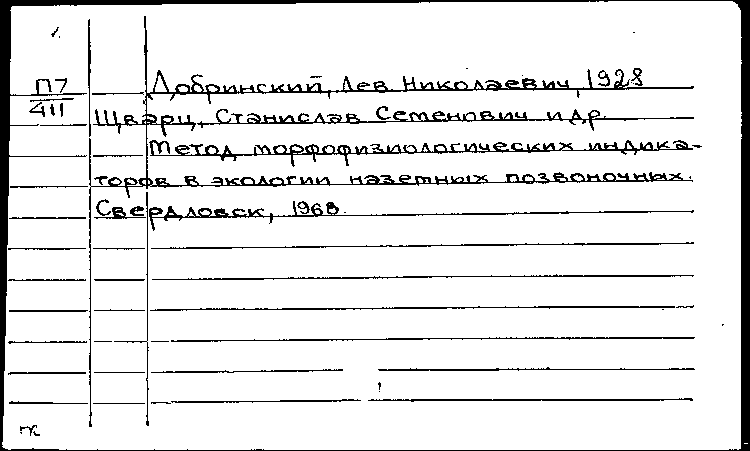 Добринский, Лев Николаевич, 1928
П7
411
Щварц, Станислав Семенович и др.
Метод морфофизиологических индика-
торов в экологии наземных позвоночных.
Свердловск, 1968.